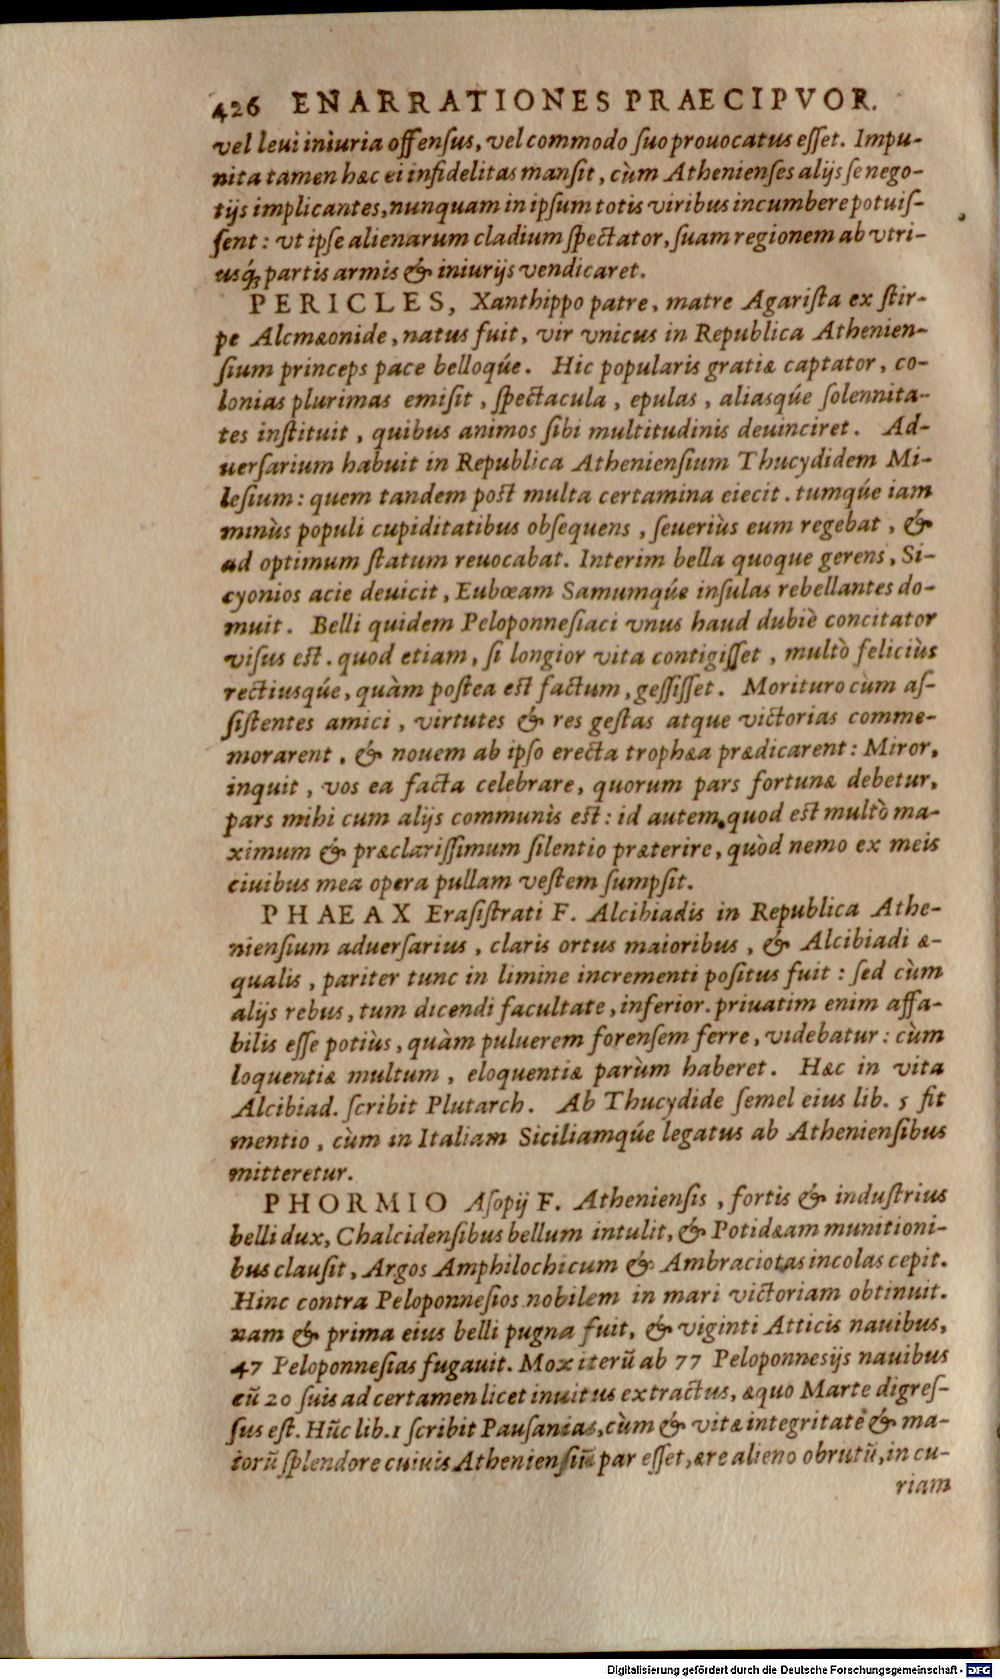 426 ENARRATIONES PRAECIPVOR.
vel leui iniuria offensus, vel commodo suo prouocatus esset. Impu-
nita tamen hæc ei infidelitas mansit, cùm Athenienses alijs se nego-
tijs implicantes, nunquam in ipsum totis viribus incumbere potuis-
sent: vt ipse alienarum cladium spectator, suam regionem ab vtri-
usq́; partis armis & iniurijs vendicaret.
PERICLES, Xanthippo patre, matre Agarista ex stir-
pe Alcmæonide, natus fuit, vir vnicus in Republica Athenien-
sium princeps pace belloq́ue. Hic popularis gratiæ captator, co-
lonias plurimas emisit, spectacula, epulas, aliasq́ue solennita-
tes instituit, quibus animos sibi multitudinis deuinciret. Ad-
uersarium habuit in Republica Atheniensium Thucydidem Mi-
lesium: quem tandem post multa certamina eiecit. tumq́ue iam
minùs populi cupiditatibus obsequens, seueriùs eum regebat, &
ad optimum statum reuocabat. Interim bella quoque gerens, Si-
cyonios acie deuicit, Eubœam Samumq́ue insulas rebellantes do-
muit. Belli quidem Peloponnesiaci vnus haud dubiè concitator
visus est. quod etiam, si longior vita contigisset, multò feliciùs
rectiusq́ue, quàm postea est factum, gessisset. Morituro cùm as-
sistentes amici, virtutes & res gestas atque victorias comme-
morarent, & nouem ab ipso erecta trophæa prædicarent: Miror,
inquit, vos ea facta celebrare, quorum pars fortunæ debetur,
pars mihi cum alijs communis est: id autem, quod est multò ma-
ximum & præclarissimum silentio præterire, quòd nemo ex meis
ciuibus mea opera pullam vestem sumpsit.
PHAEAX Erasistrati F. Alcibiadis in Republica Athe-
niensium aduersarius, claris ortus maioribus, & Alcibiadi æ-
qualis, pariter tunc in limine incrementi positus fuit: sed cùm
alijs rebus, tum dicendi facultate, inferior. priuatim enim affa-
bilis esse potiùs, quàm puluerem forensem ferre, videbatur: cùm
loquentiæ multum, eloquentiæ parùm haberet. Hæc in vita
Alcibiad. scribit Plutarch. Ab Thucydide semel eius lib. 5 fit
mentio, cùm in Italiam Siciliamq́ue legatus ab Atheniensibus
mitteretur.
PHORMIO Asopij F. Atheniensis, fortis & industrius
belli dux, Chalcidensibus bellum intulit, & Potidæam munitioni-
bus clausit, Argos Amphilochicum & Ambraciotas incolas cepit.
Hinc contra Peloponnesios nobilem in mari victoriam obtinuit.
nam & prima eius belli pugna fuit, & viginti Atticis nauibus,
47 Peloponnesias fugauit. Mox iterũ ab 77 Peloponnesijs nauibus
cũ 20 suis ad certamen licet inuitus extractus, æquo Marte digres-
sus est. Hũc lib. 1 scribit Pausanias, cùm & vitæ integritate & ma-
iorũ splendore cuiuis Atheniensiũ par esset, ære alieno obrutũ, in cu-
riam
Digitalisierung gefördert durch die Deutsche Forschungsgemeinschaft - DFG